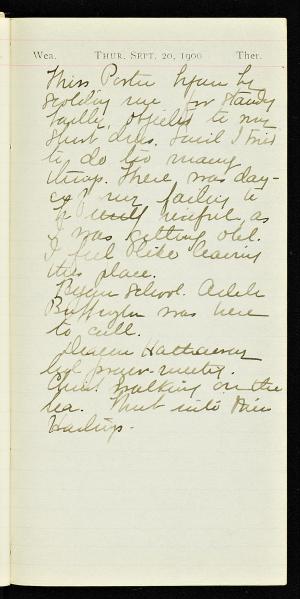 Wea. THUR. SEPT. 20, 1900 Ther.
Miss Porter began by
scolding me for standy
table, objected to my
short dress. Said I tried
to do too many
things. There was
of my failing to
be useful, as
I was getting old.
I feel like leaving
this place.
Began School. Adele
Buffington was here
to call.
Deacon Hathaway
led prayer-meeting.
Christ walking on the
sea. Went into Miss
Hastings.